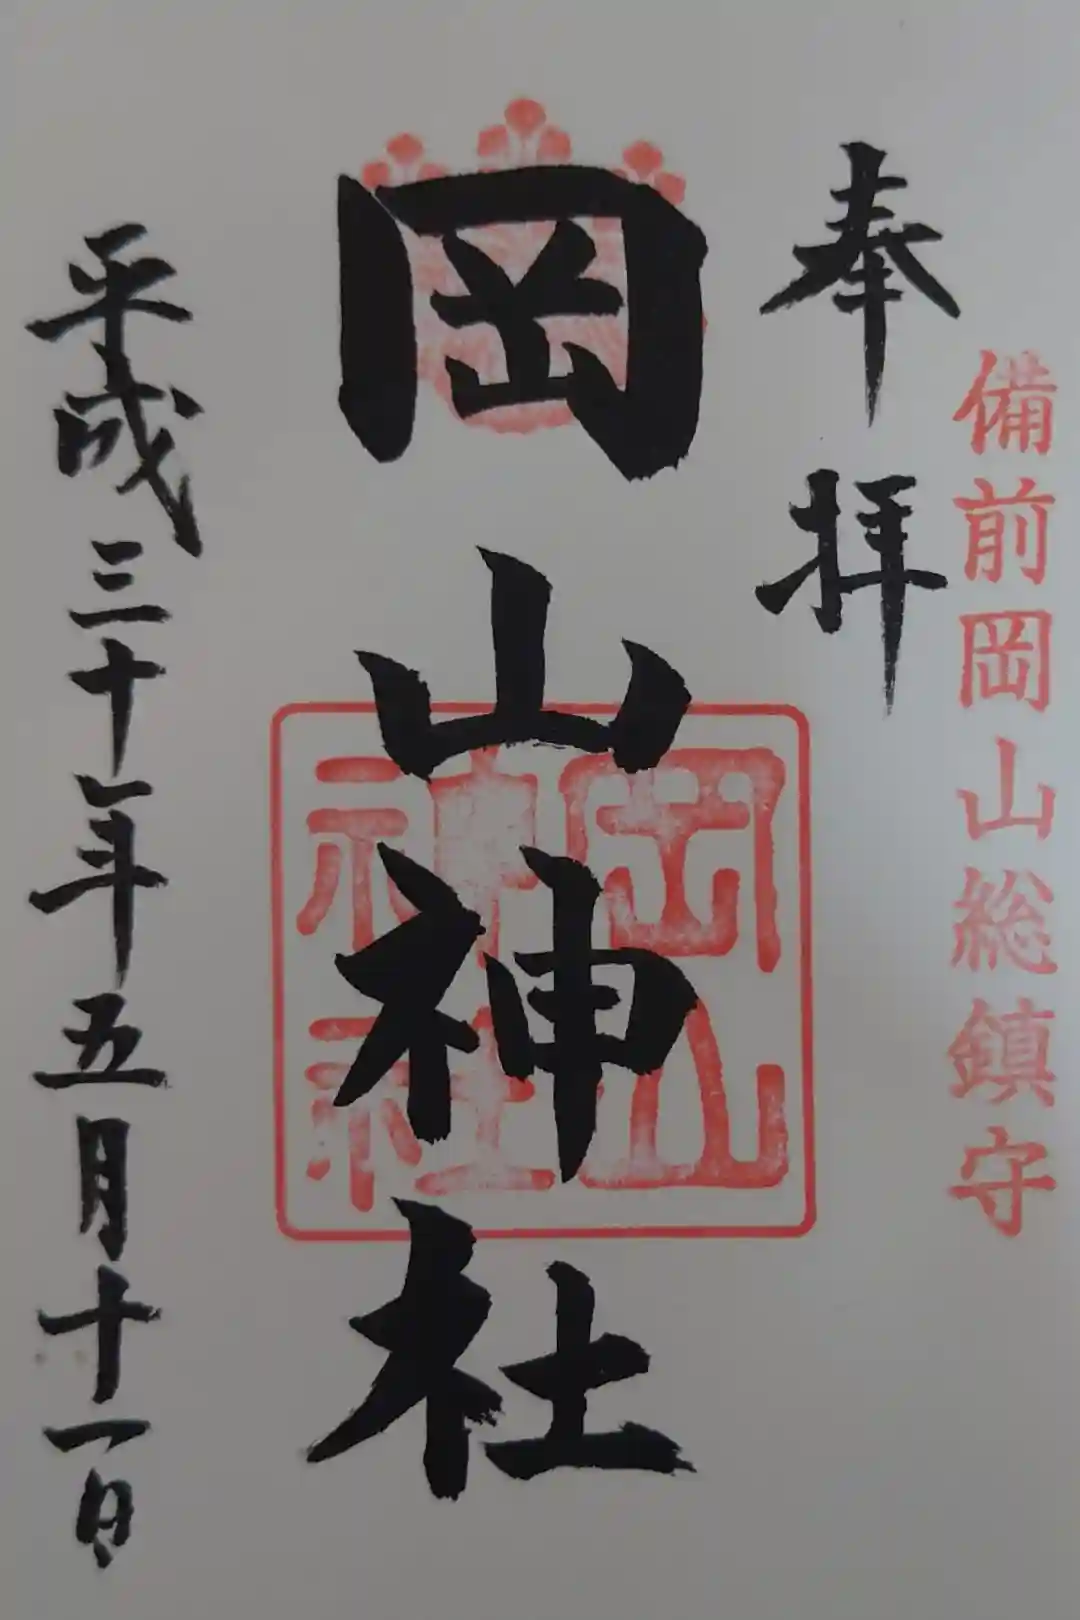 備前岡山総鎮守
奉拝
岡山神社
岡山
神社
平成三十年五月十一日